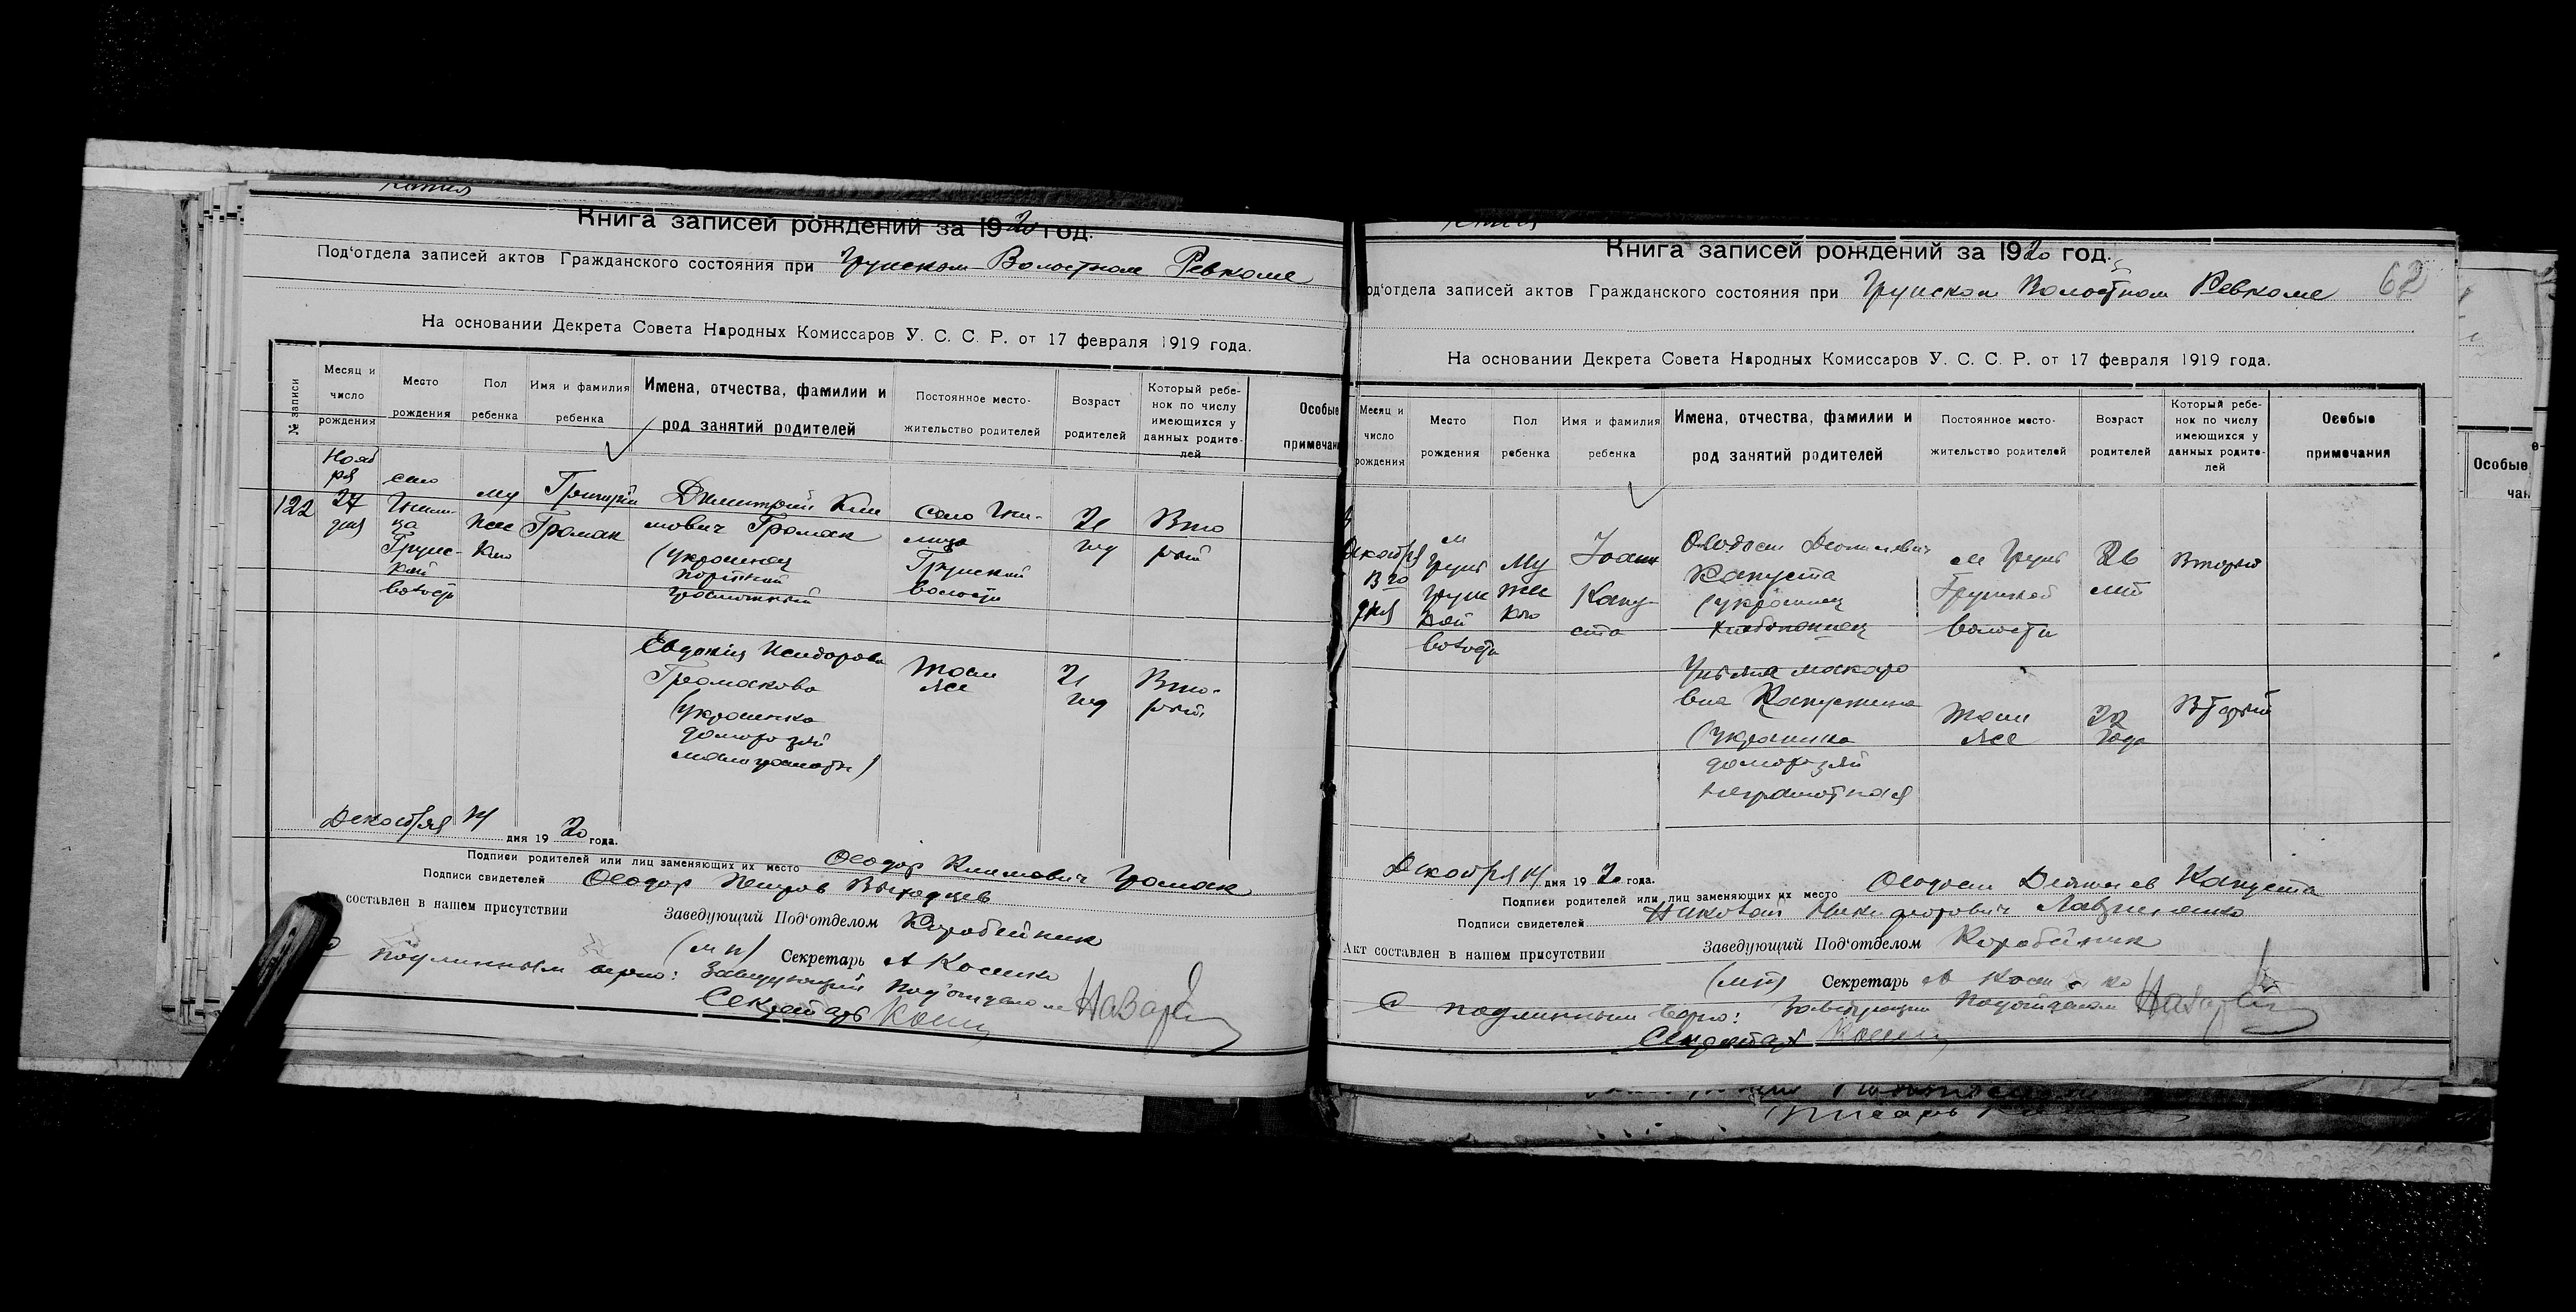 Копия
Книга записей рождений за 1920 год.
Под'отдела записей актов Гражданского состояния при Грунском Волостном Ревкоме
На основании Декрета Совета Народных Комиссаров У. С. С. Р. от 17 февраля 1919 года.
№ записи
Месяц и число рождения
Место рождения
Пол ребенка
Имя и фамилия ребенка
Имена, отчества, фамилии и род занятий родителей
Постоянное место-
жительство родителей
Возраст родителей
Который ребе-
нок по числу
имеющихся у
данных родите-
лей
Особые
примечан
122
Нояб
ря
27
дня
село
Грунс-
кой
волости
му
жс
кого
Григорий
Громак
Димитрий Кли
мович Громак
(украинец
портной
грамотный
село
Грунской
волости
21
год
Вто
рой
Евдокия Исидорова
Громакова
(украинка
домохозяй
малограмотн)
там
же
21
год
Вто-
рой
Декабря 14 дня 1920 года.
Подписи родителей или лиц заменяющих их место Феодор Климович Громак
Подписи свидетелей Феодор Петров
составлен в нашем присутствии
Заведующий Под'отделом Коробейник
(М П) Секретарь А Косенко
С подлинным верно: Заведующий Под'отделом
Секретарь
Книга записей рождений за 1920 год.
62
од'отдела записей актов Гражданского состояния при Грунском Волостном Ревкоме
На основании Декрета Совета Народных Комиссаров У. С. С. Р. от 17 февраля 1919 года.
Месяц и число рождения
Место рождения
Пол ребенка
Имя и фамилия ребенка
Имена, отчества, фамилии и род занятий родителей
Постоянное место-
жительство родителей
Возраст родителей
Который ребе-
нок по числу
имеющихся у
данных родите-
лей
Особые
примечания
Декабря
дня
м
Грунь
Грунс
кой
волости
Му
жс
кого
Иоанн
Капу
ста
Феодосий
Капуста
(украинец
хлебопашец
м Грунь
Грунской
волости
26
лет
Второй
Макаро
вна Капустина
(украинка
домохозяй
неграмотная
там
же
22
года
Второй
Декабря 14 дня 1920 года.
Подписи родителей или лиц заменяющих их место Феодосий Капуста
Подписи свидетелей Николай Никифорович
Акт составлен в нашем присутствии
Заведующий Под'отделом Коробейник
(МП) Секретарь А Косенко
С подлинным верно: Заведующий Подотделом
Секретарь
Особые
чан